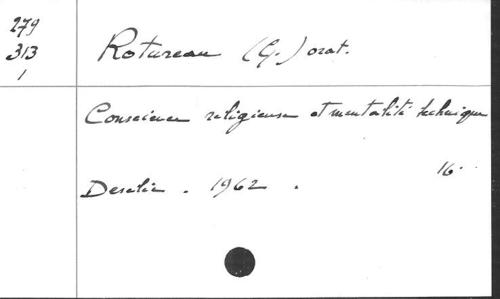 279
313
1
Rotureau (G.) orat.
Conscience religieuse et mentalité technique
16.
Desclée . 1962 .